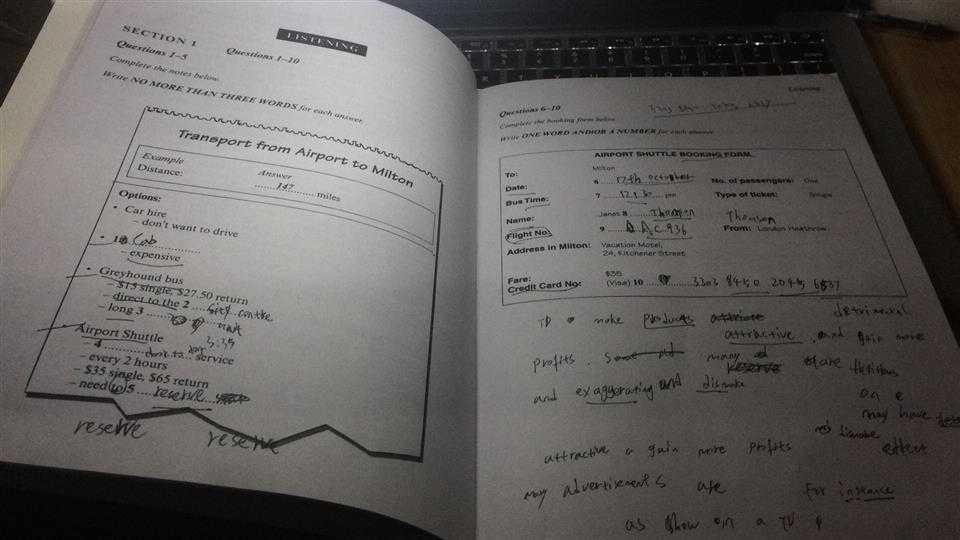 SECTION 1
LISTENING
Questions 1–10
Questions 1–5
Complete the notes below.
Write NO MORE THAN THREE WORDS for each answer.
Transport from Airport to Milton
Example Answer
Distance: ......147...... miles
Options:
• Car hire
– don't want to drive
• 1 Cab
– expensive
• Greyhound bus
– $15 single, $27.50 return
– direct to the 2 city centre
– long 3
Airport Shuttle
4 service
– every 2 hours
– $35 single, $65 return
– need to 5 reserve
reserve reserve
Listening
Questions 6–10
Complete the booking form below.
Write ONE WORD AND/OR A NUMBER for each answer.
AIRPORT SHUTTLE BOOKING FORM
To: Milton
Date: 6 17th October No. of passengers: One
Bus Time: 7 12:30 pm Type of ticket: Single
Name: Janet 8 Thompson Thomson
Flight No. 9 AC 936 From: London Heathrow
Address in Milton: Vacation Motel,
24, Kitchener Street
Fare: $35
Credit Card No: (Visa) 10 3303 8450 2045 6837
TO make products attractive and gain more
detrimental
profits many are
and exaggerating and
may have
attractive gain more profits
effect
may advertisements are for instance
as show on a TV